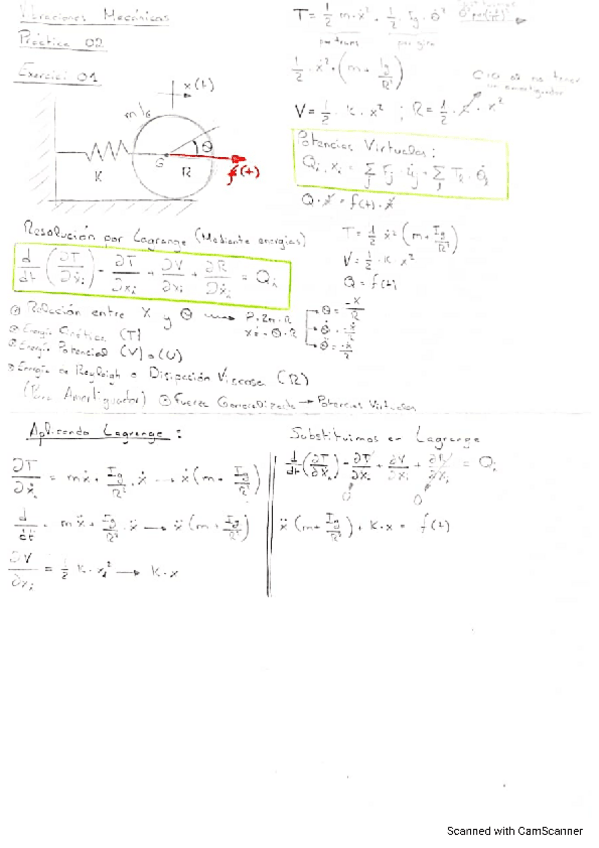 Vibraciones Mecánicas
Práctica 02
Ejercicio 01
x(t)
m, I_G
θ
K
G
R
f(t)
T = 1/2 m·ẋ² + 1/2 · Ig · θ̇²
por trans
por giro
1/2 · ẋ² · (m + Ig/R²)
C=0 al no tener
V = 1/2 · K · x² ; R = 1/2 · c · ẋ²
Potencias Virtuales:
Q · ẋ = f(t) · ẋ
Resolución por Lagrange (Mediante energías)
d/dt (∂T/∂ẋi) - ∂T/∂xi + ∂V/∂xi + ∂R/∂ẋi = Qi
T = 1/2 ẋ² (m + Ig/R²)
V = 1/2 · K · x²
Q = f(t)
Relación entre x y θ
θ = -x/R
θ̇ = -ẋ/R
θ̈ = -ẍ/R
Energía Cinética (T)
Energía Potencial (V) o (U)
Energía de Reyleigh o Disipación Viscosa (R)
(Para Amortiguador)
Fuerza Generalizada → Potencias Virtuales
Aplicando Lagrange:
∂T/∂ẋi = mẋ + Ig/R² · ẋ → ẋ(m + Ig/R²)
d/dt = mẍ + Ig/R² · ẍ → ẍ(m + Ig/R²)
∂V/∂xi = 1/2 K · xi² → K · x
Substituimos en Lagrange
d/dt (∂T/∂ẋi) - ∂T/∂xi + ∂V/∂xi + ∂R/∂ẋi = Qi
0
0
ẍ (m + Ig/R²) + K · x = f(t)
Scanned with CamScanner